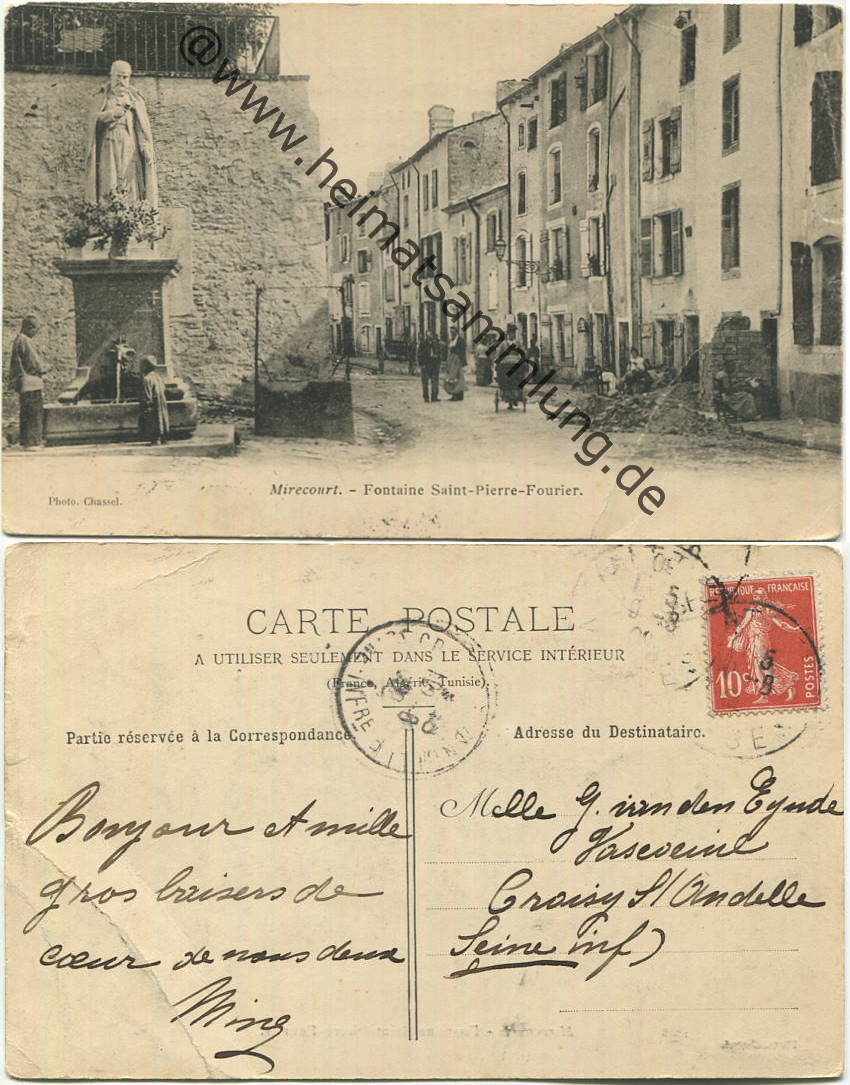 @www.heimatsammlung.de
Mirecourt. - Fontaine Saint-Pierre-Fourier.
Photo. Chassel.
CARTE POSTALE
A UTILISER SEULEMENT DANS LE SERVICE INTÉRIEUR
(France, Algérie, Tunisie).
RÉPUBLIQUE FRANÇAISE
10c
POSTES
Partie réservée à la Correspondance.
Adresse du Destinataire.
Bonjour et mille
gros baisers de
cœur de nous deux
Melle G. van den Eynde
Vascoeine
Croisy S/Andelle
Seine inf)